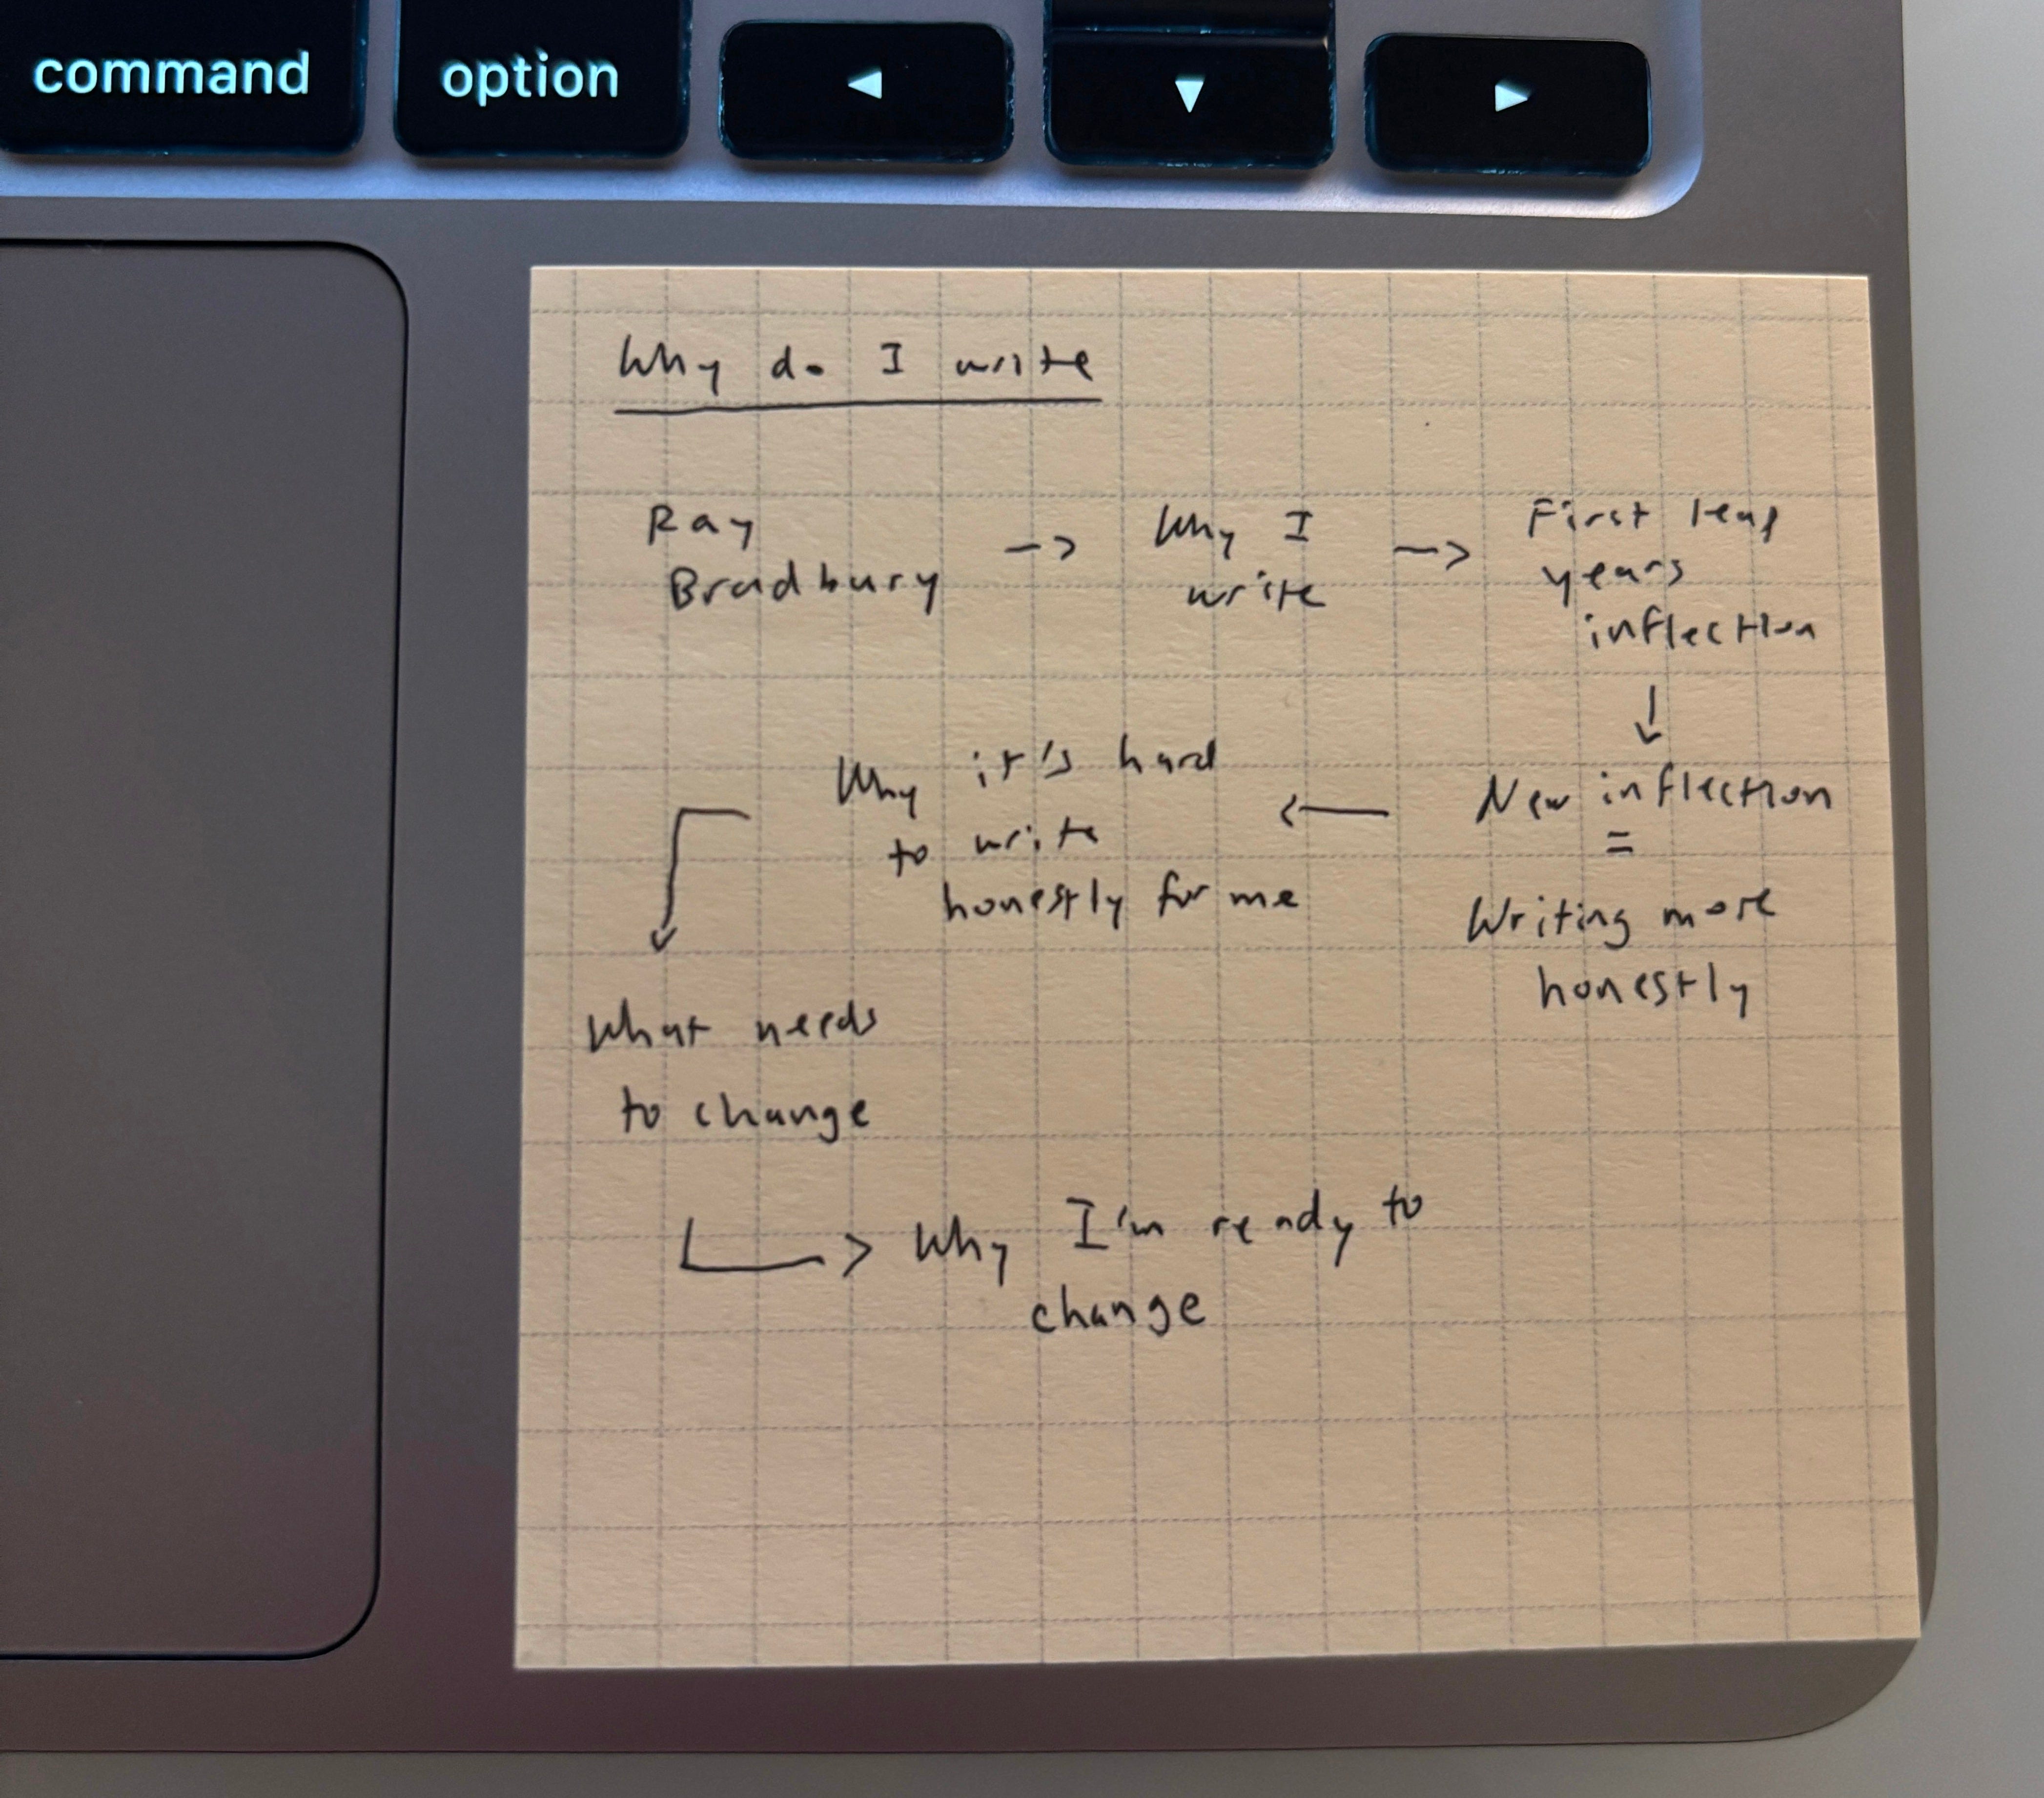 command option ◀ ▼ ▶
Why do I write
Ray
Bradbury
->
Why I
write
->
First leap
years
inflection
↓
New inflection
=
Writing more
honestly
<-
Why it's hard
to write
honestly for me
↓
What needs
to change
->
Why I'm ready to
change